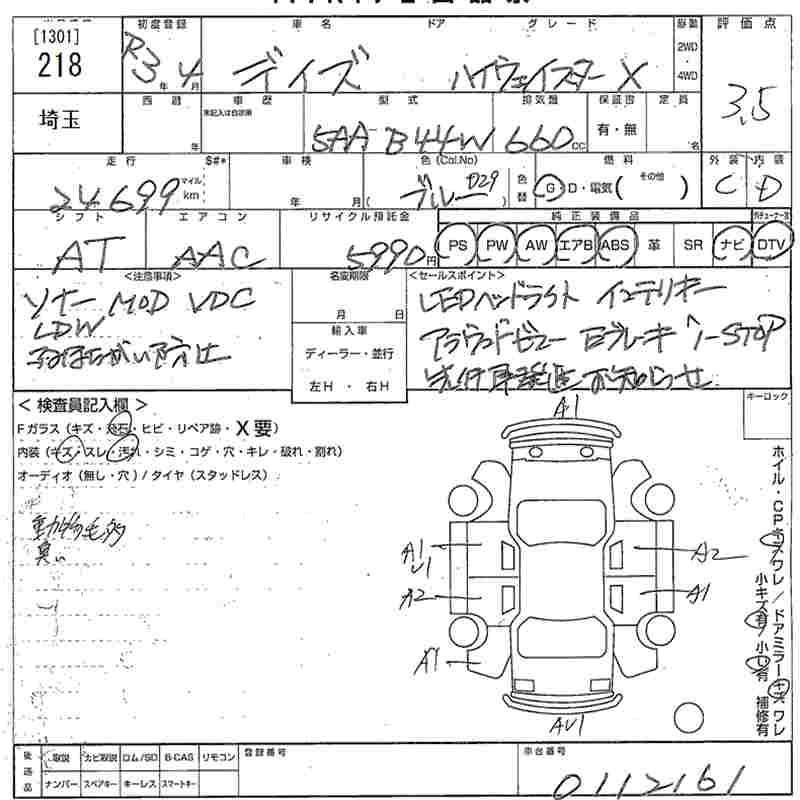 [1301]
218
埼玉
初度登録 車名 ドア グレード 駆動 評価点
R3年 4月 デイズ ハイウェイスター X 2WD・4WD 3.5
西暦 車歴 型式 排気量 保証書 定員
年 未記入は自家用 5AA-B44W 660cc 有・無 名
走行 S#* 車検 色(Col.No) 燃料 外装 内装
24699 マイル km 年 月( ブルー D29 ) 色替 G・D・電気( その他 ) C D
シフト エアコン リサイクル預託金 純正装備品
AT AAC 5990円 PS PW AW エアB ABS 革 SR ナビ DTV
<注意事項> 名変期限 <セールスポイント>
ソナー MOD VDC
LDW
月 日
輸入車
ディーラー・並行
左H ・ 右H
LEDヘッドライト インテリキー
アラウンドビュー Eブレーキ I-STOP
< 検査員記入欄 >
Fガラス(キズ・飛石・ヒビ・リペア跡・X要)
内装(キズ・スレ・汚れ・シミ・コゲ・穴・キレ・破れ・割れ)
オーディオ(無し・穴)/タイヤ(スタッドレス)
臭い
キーロック
A1
A1
U1
A2
A2
A1
A1
AU1
ホイル・CPキズワレ/ドアミラーキズワレ
小キズ有/小U有 補修有
後送品 取説 ナビ取説 ロム/SD B-CAS リモコン 登録番号 車台番号
ナンバー スペアキー キーレス スマートキー 0112161